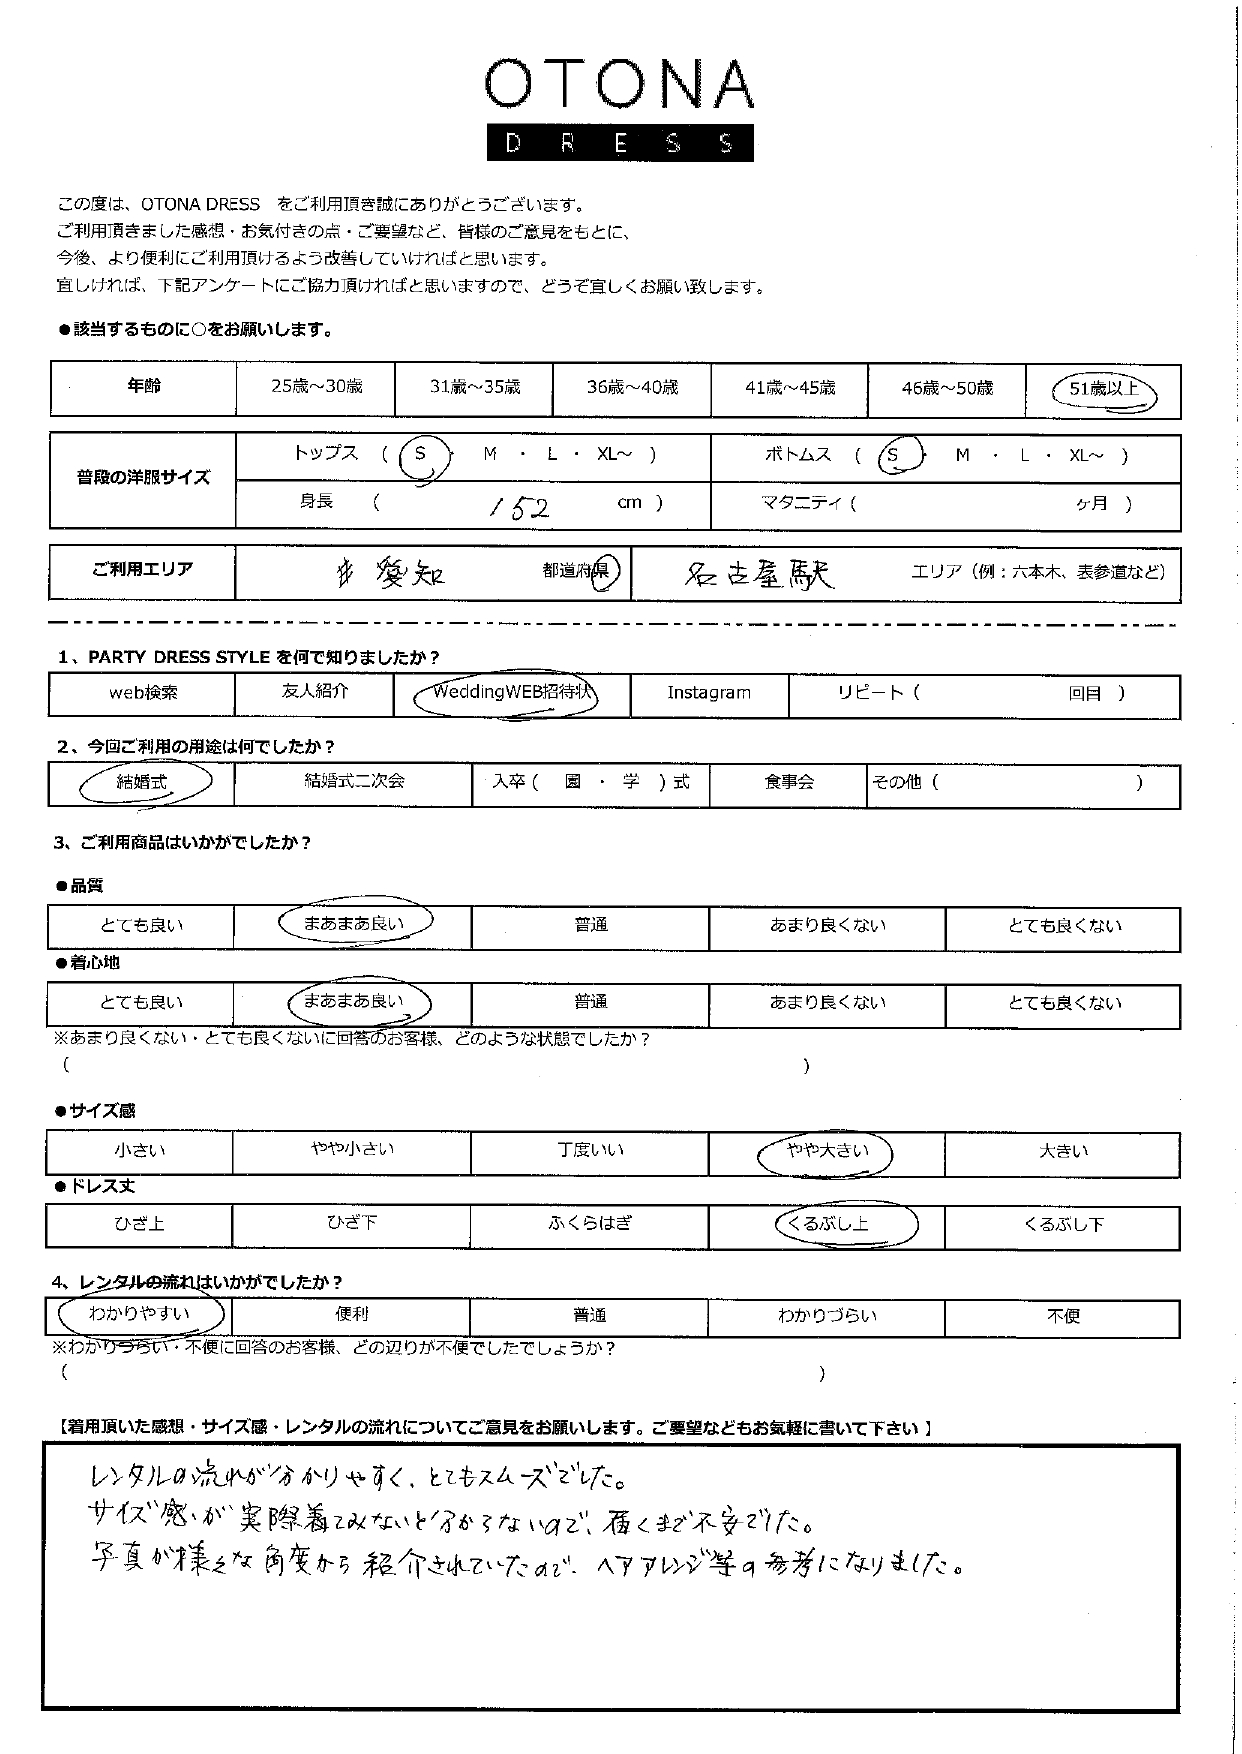 OTONA
DRESS
この度は、OTONA DRESS をご利用頂き誠にありがとうございます。
ご利用頂きました感想・お気付きの点・ご要望など、皆様のご意見をもとに、
今後、より便利にご利用頂けるよう改善していければと思います。
宜しければ、下記アンケートにご協力頂ければと思いますので、どうぞ宜しくお願い致します。
●該当するものに○をお願いします。
年齢 25歳～30歳 31歳～35歳 36歳～40歳 41歳～45歳 46歳～50歳 51歳以上
普段の洋服サイズ トップス ( S ・ M ・ L ・ XL～ ) ボトムス ( S ・ M ・ L ・ XL～ )
身長 ( 152 cm ) マタニティ ( ヶ月 )
ご利用エリア 愛知 都道府県 名古屋駅 エリア（例：六本木、表参道など）
1、PARTY DRESS STYLE を何で知りましたか？
web検索 友人紹介 WeddingWEB招待状 Instagram リピート ( 回目 )
2、今回ご利用の用途は何でしたか？
結婚式 結婚式二次会 入卒 ( 園 ・ 学 ) 式 食事会 その他 ( )
3、ご利用商品はいかがでしたか？
●品質
とても良い まあまあ良い 普通 あまり良くない とても良くない
●着心地
とても良い まあまあ良い 普通 あまり良くない とても良くない
※あまり良くない・とても良くないに回答のお客様、どのような状態でしたか？
( )
●サイズ感
小さい やや小さい 丁度いい やや大きい 大きい
●ドレス丈
ひざ上 ひざ下 ふくらはぎ くるぶし上 くるぶし下
4、レンタルの流れはいかがでしたか？
わかりやすい 便利 普通 わかりづらい 不便
※わかりづらい・不便に回答のお客様、どの辺りが不便でしたでしょうか？
( )
【着用頂いた感想・サイズ感・レンタルの流れについてご意見をお願いします。ご要望などもお気軽に書いて下さい 】
レンタルの流れが分かりやすく、とてもスムーズでした。
サイズ感が実際着てみないと分からないので、届くまで不安でした。
写真が様々な角度から紹介されていたので、ヘアアレンジ等の参考になりました。